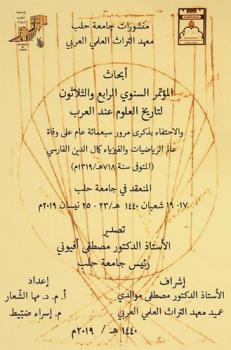 منشورات جامعة حلب
معهد التراث العلمي العربي
أبحاث
المؤتمر السنوي الرابع والثلاثون
لتاريخ العلوم عند العرب
والاحتفاء بذكرى مرور سبعمائة عام على وفاة
عالم الرياضيات والفيزياء كمال الدين الفارسي
(المتوفى سنة ٧١٨هـ/١٣١٩م)
المنعقد في جامعة حلب
١٧- ١٩ شعبان ١٤٤٠ هـ/٢٣- ٢٥ نيسان ٢٠١٩م
تصدير
الأستاذ الدكتور مصطفى أفيوني
رئيس جامعة حلب
إشراف
الأستاذ الدكتور مصطفى موالدي
عميد معهد التراث العلمي العربي
إعداد
أ. م. د. مها الشعار
م. إسراء ضبيط
١٤٤٠ هـ / ٢٠١٩م